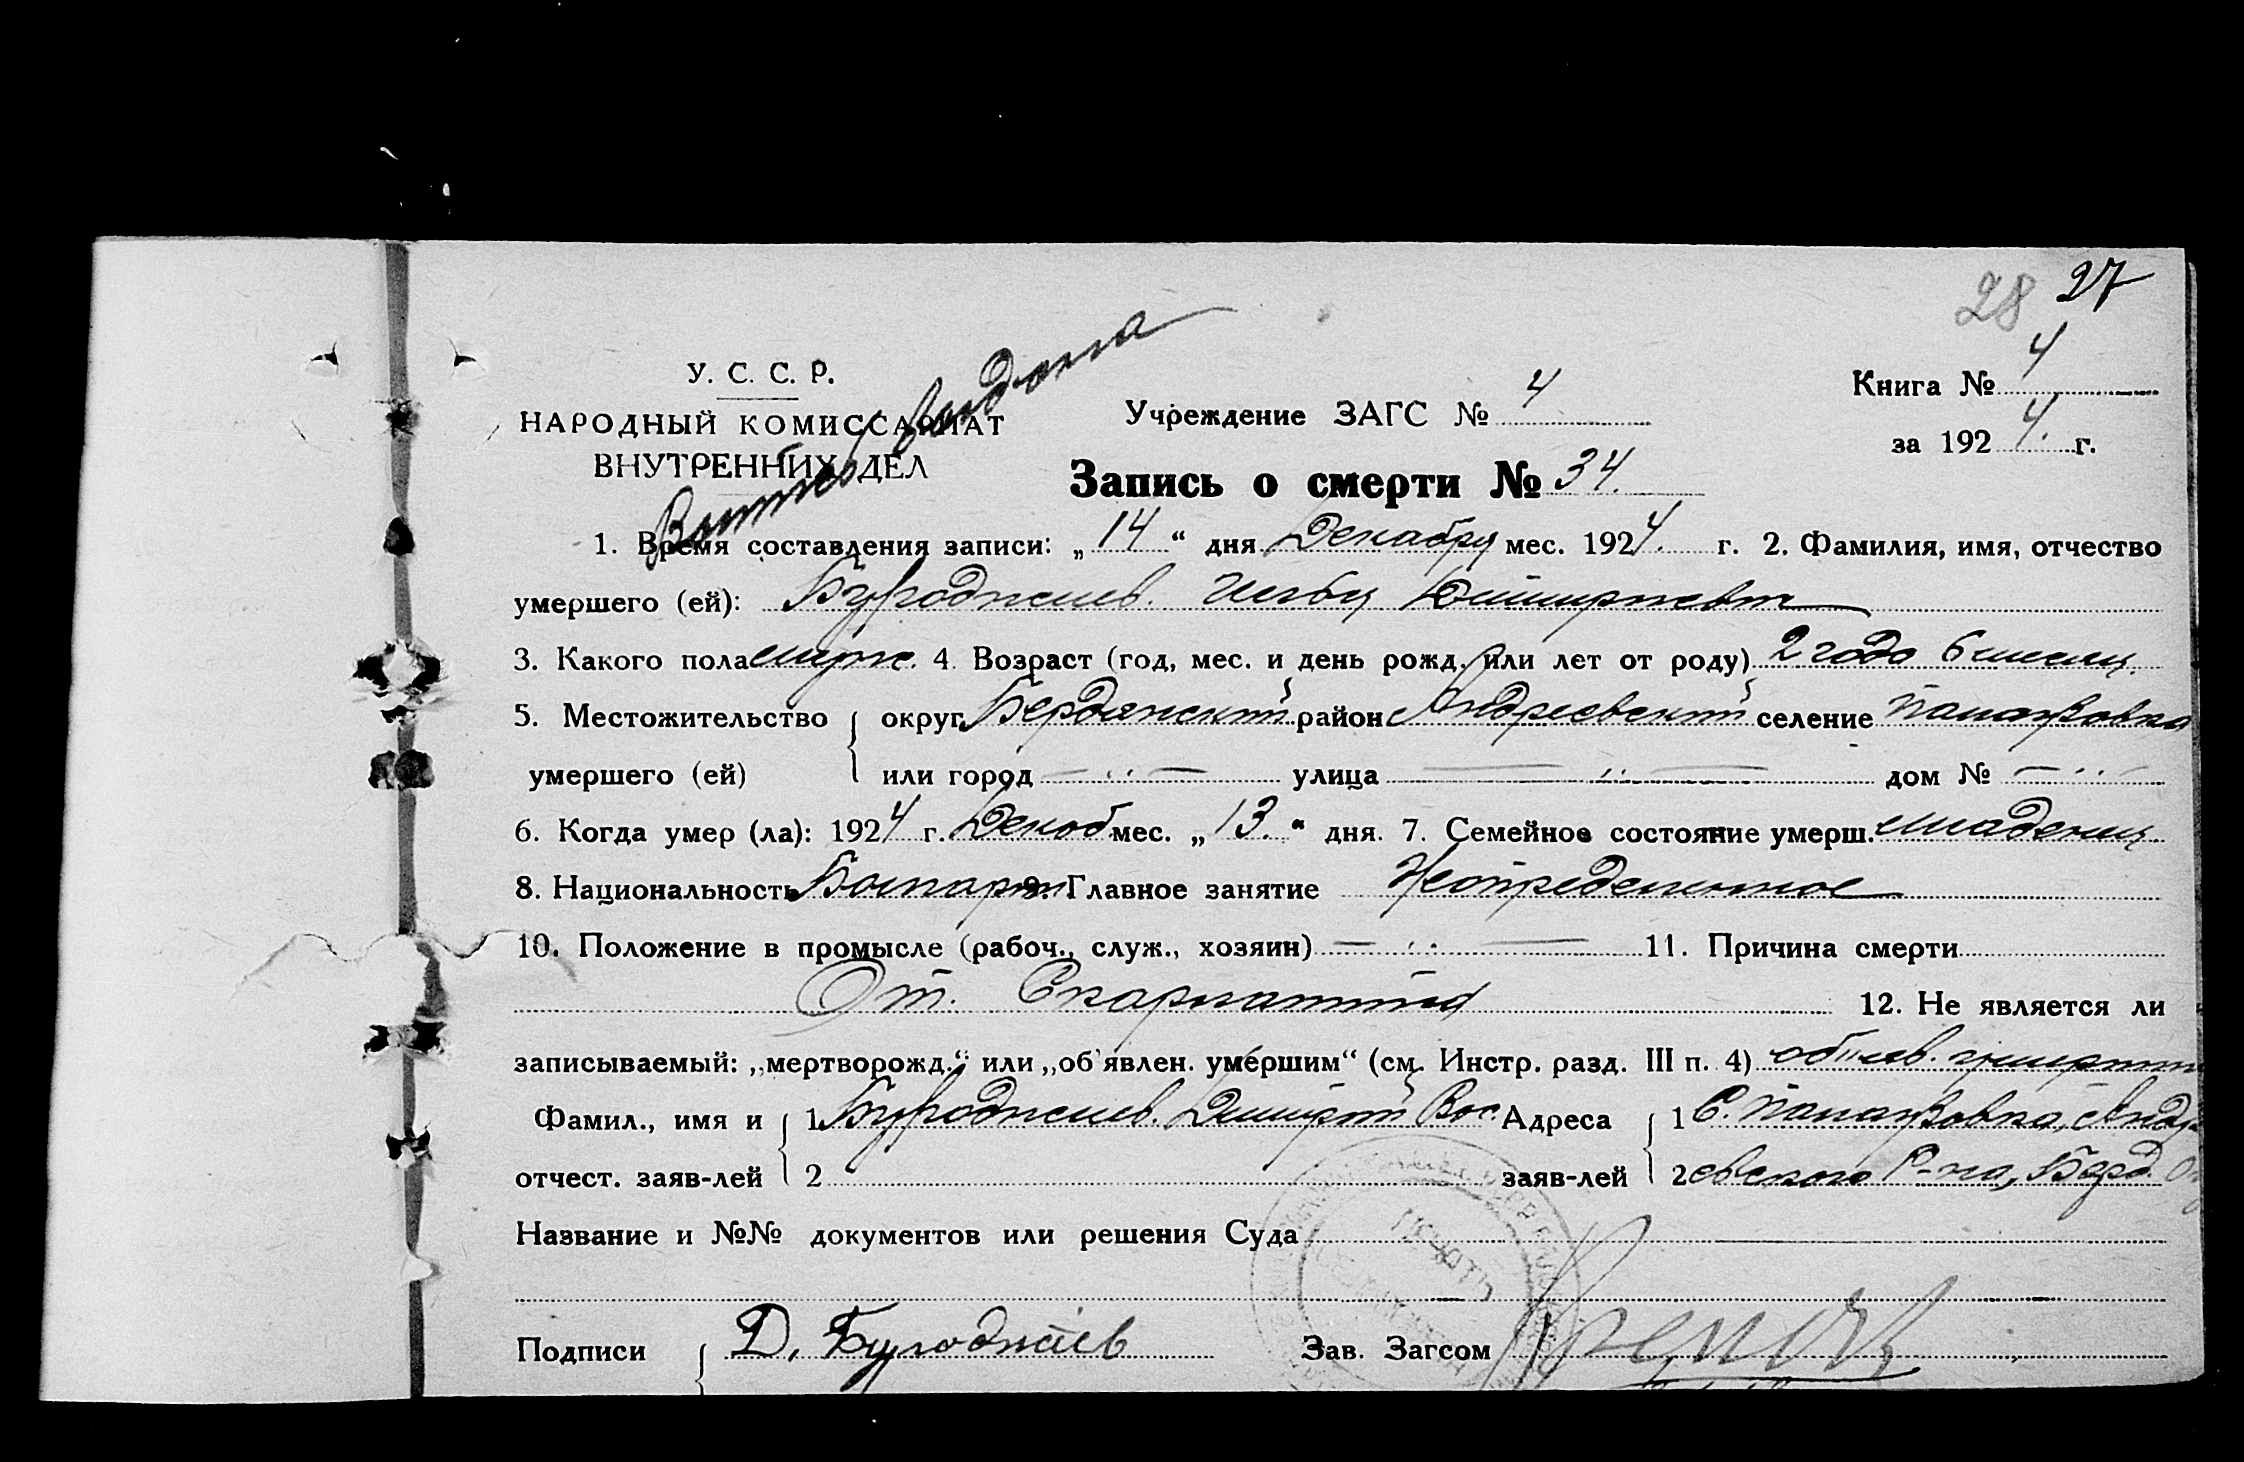 28 27
У. С. С. Р.
НАРОДНЫЙ КОМИССАРИАТ
ВНУТРЕННИХ ДЕЛ
Выпись выдана
Учреждение ЗАГС № 4
Книга № 4
за 1924 г.
Запись о смерти № 34.
1. Время составления записи: „14“ дня Декабря мес. 1924. г. 2. Фамилия, имя, отчество
умершего (ей): Бурлоджиев. Дмитриевич
3. Какого пола мужс. 4. Возраст (год, мес. и день рожд. или лет от роду) 2 года 6 месяц.
5. Местожительство округ Бердянский район Андреевский селение
умершего (ей) или город — ·· — улица — ·· — дом № — ·· —
6. Когда умер (ла): 1924 г. Декаб мес. „13.“ дня. 7. Семейное состояние умерш. младенец.
8. Национальность Болгарин 9. Главное занятие Неопределенное
10. Положение в промысле (рабоч., служ., хозяин) — ·· — 11. Причина смерти
От. Скарлатины
12. Не является ли
записываемый: „мертворожд.“ или „об'явлен. умершим“ (см. Инстр. разд. III п. 4) объяв. умершим
Фамил., имя и 1 Дмитрий Вас. Адреса 1 С.
отчест. заяв-лей 2 заяв-лей 2 евского Р-на, Берд.
Название и №№ документов или решения Суда
Подписи Д. Зав. Загсом
ПЕЧАТЬ